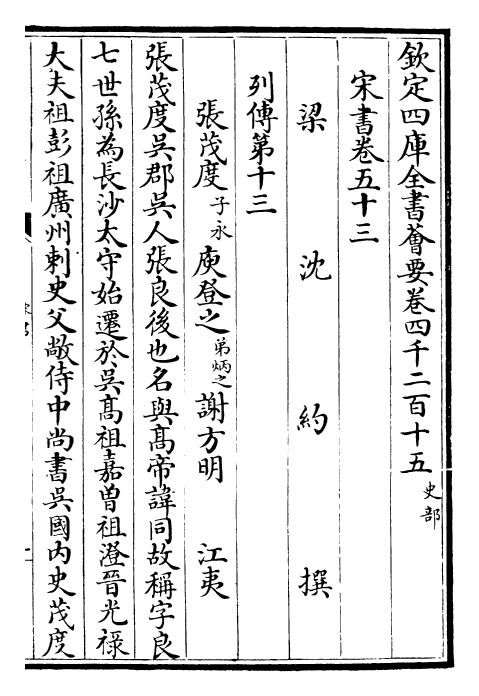 欽定四庫全書薈要卷四千二百十五 史部
宋書卷五十三
梁沈約撰
列傳第十三
張茂度 子永 庾登之 弟炳之 謝方明 江夷
張茂度吳郡吳人張良後也名與髙帝諱同故稱字良
七世孫為長沙太守始遷於吳髙祖嘉曽祖澄晉光禄
大夫祖彭祖廣州刺史父敞侍中尚書吳國内史茂度